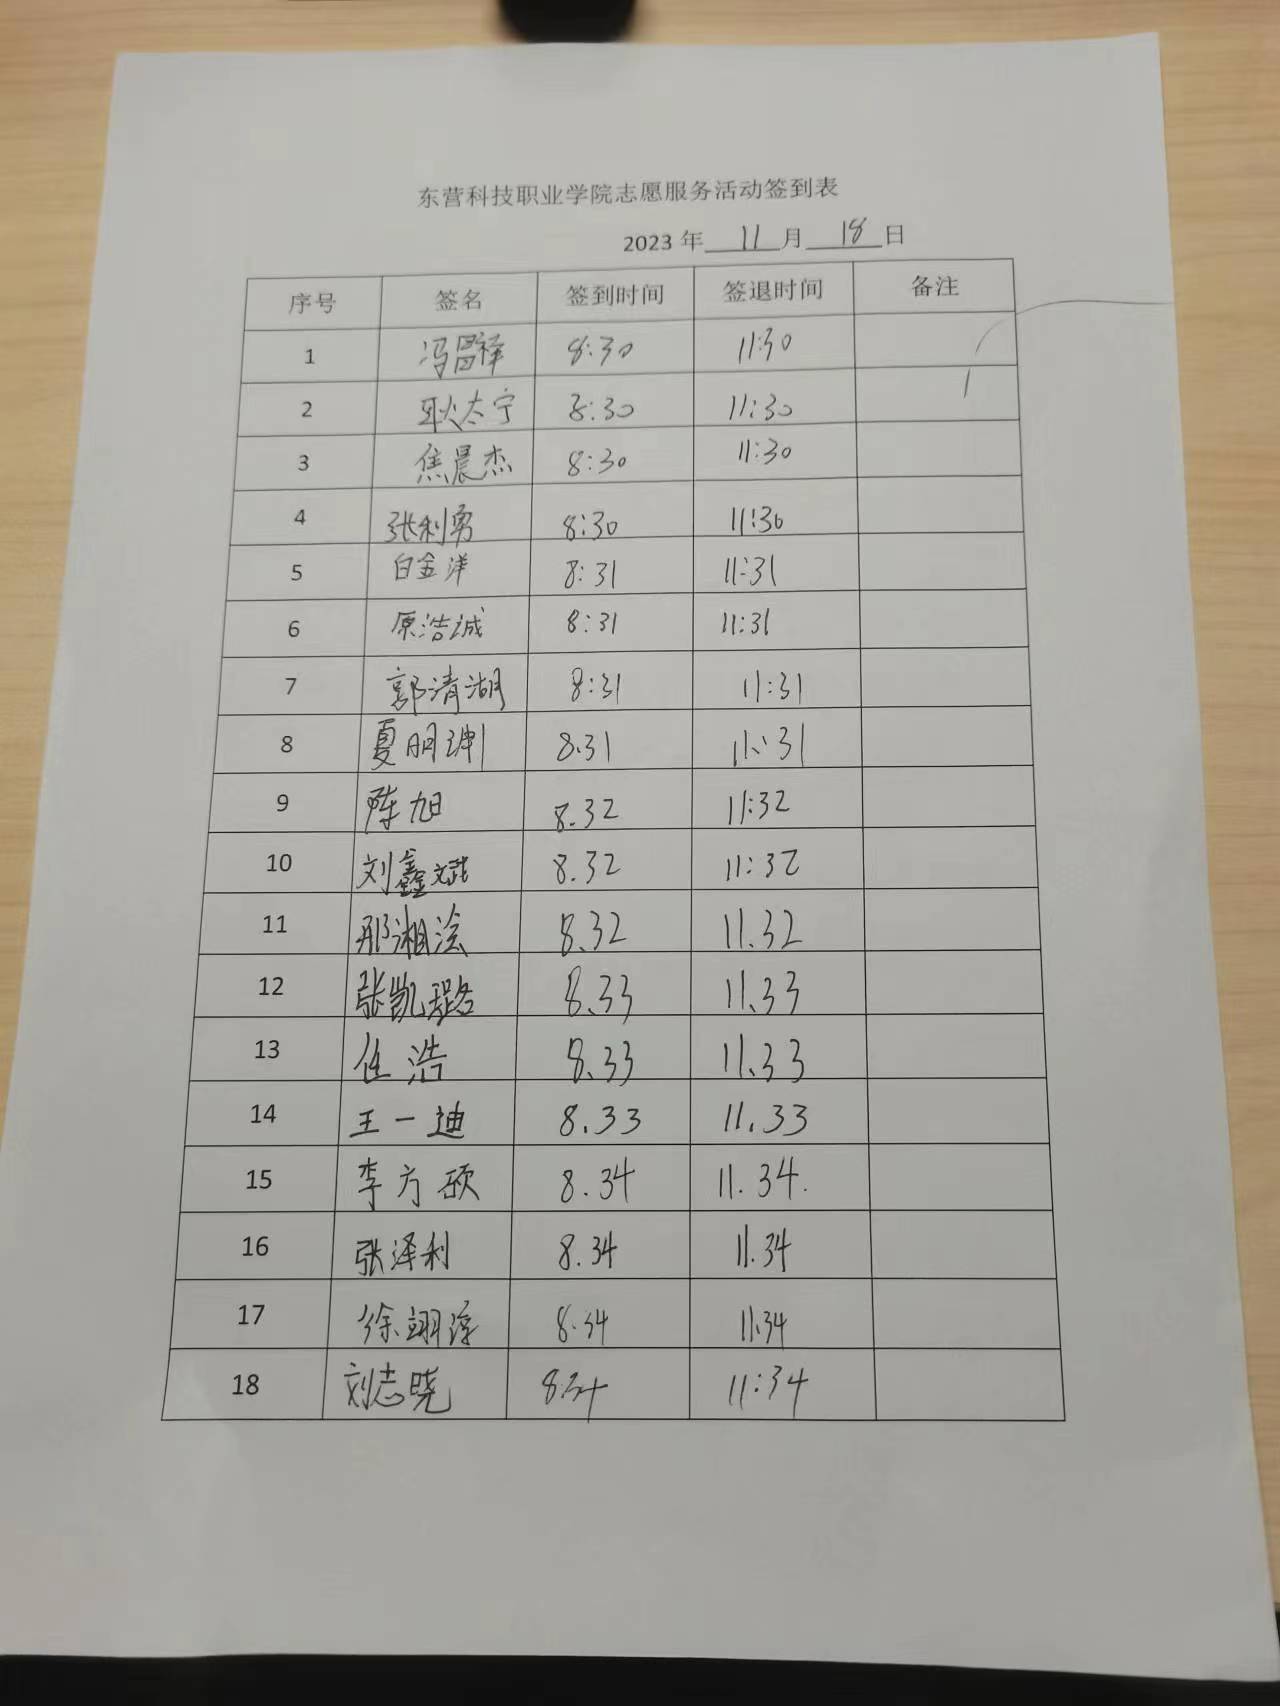 东营科技职业学院志愿服务活动签到表
2023 年 11 月 18 日
序号 签名 签到时间 签退时间 备注
1 冯昌祥 8:30 11:30
2 耿太宁 8:30 11:30
3 焦晨杰 8:30 11:30
4 张利勇 8:30 11:30
5 白金洋 8:31 11:31
6 原浩诚 8:31 11:31
7 郭清湖 8:31 11:31
8 夏明坤 8.31 11:31
9 陈旭 8.32 11:32
10 刘鑫斌 8.32 11:32
11 8.32 11.32
12 张凯璐 8.33 11.33
13 任浩 8.33 11.33
14 王一迪 8.33 11.33
15 李方硕 8.34 11.34.
16 张泽利 8.34 11.34
17 徐翊淳 8.34 11.34
18 刘志晓 8.34 11:34